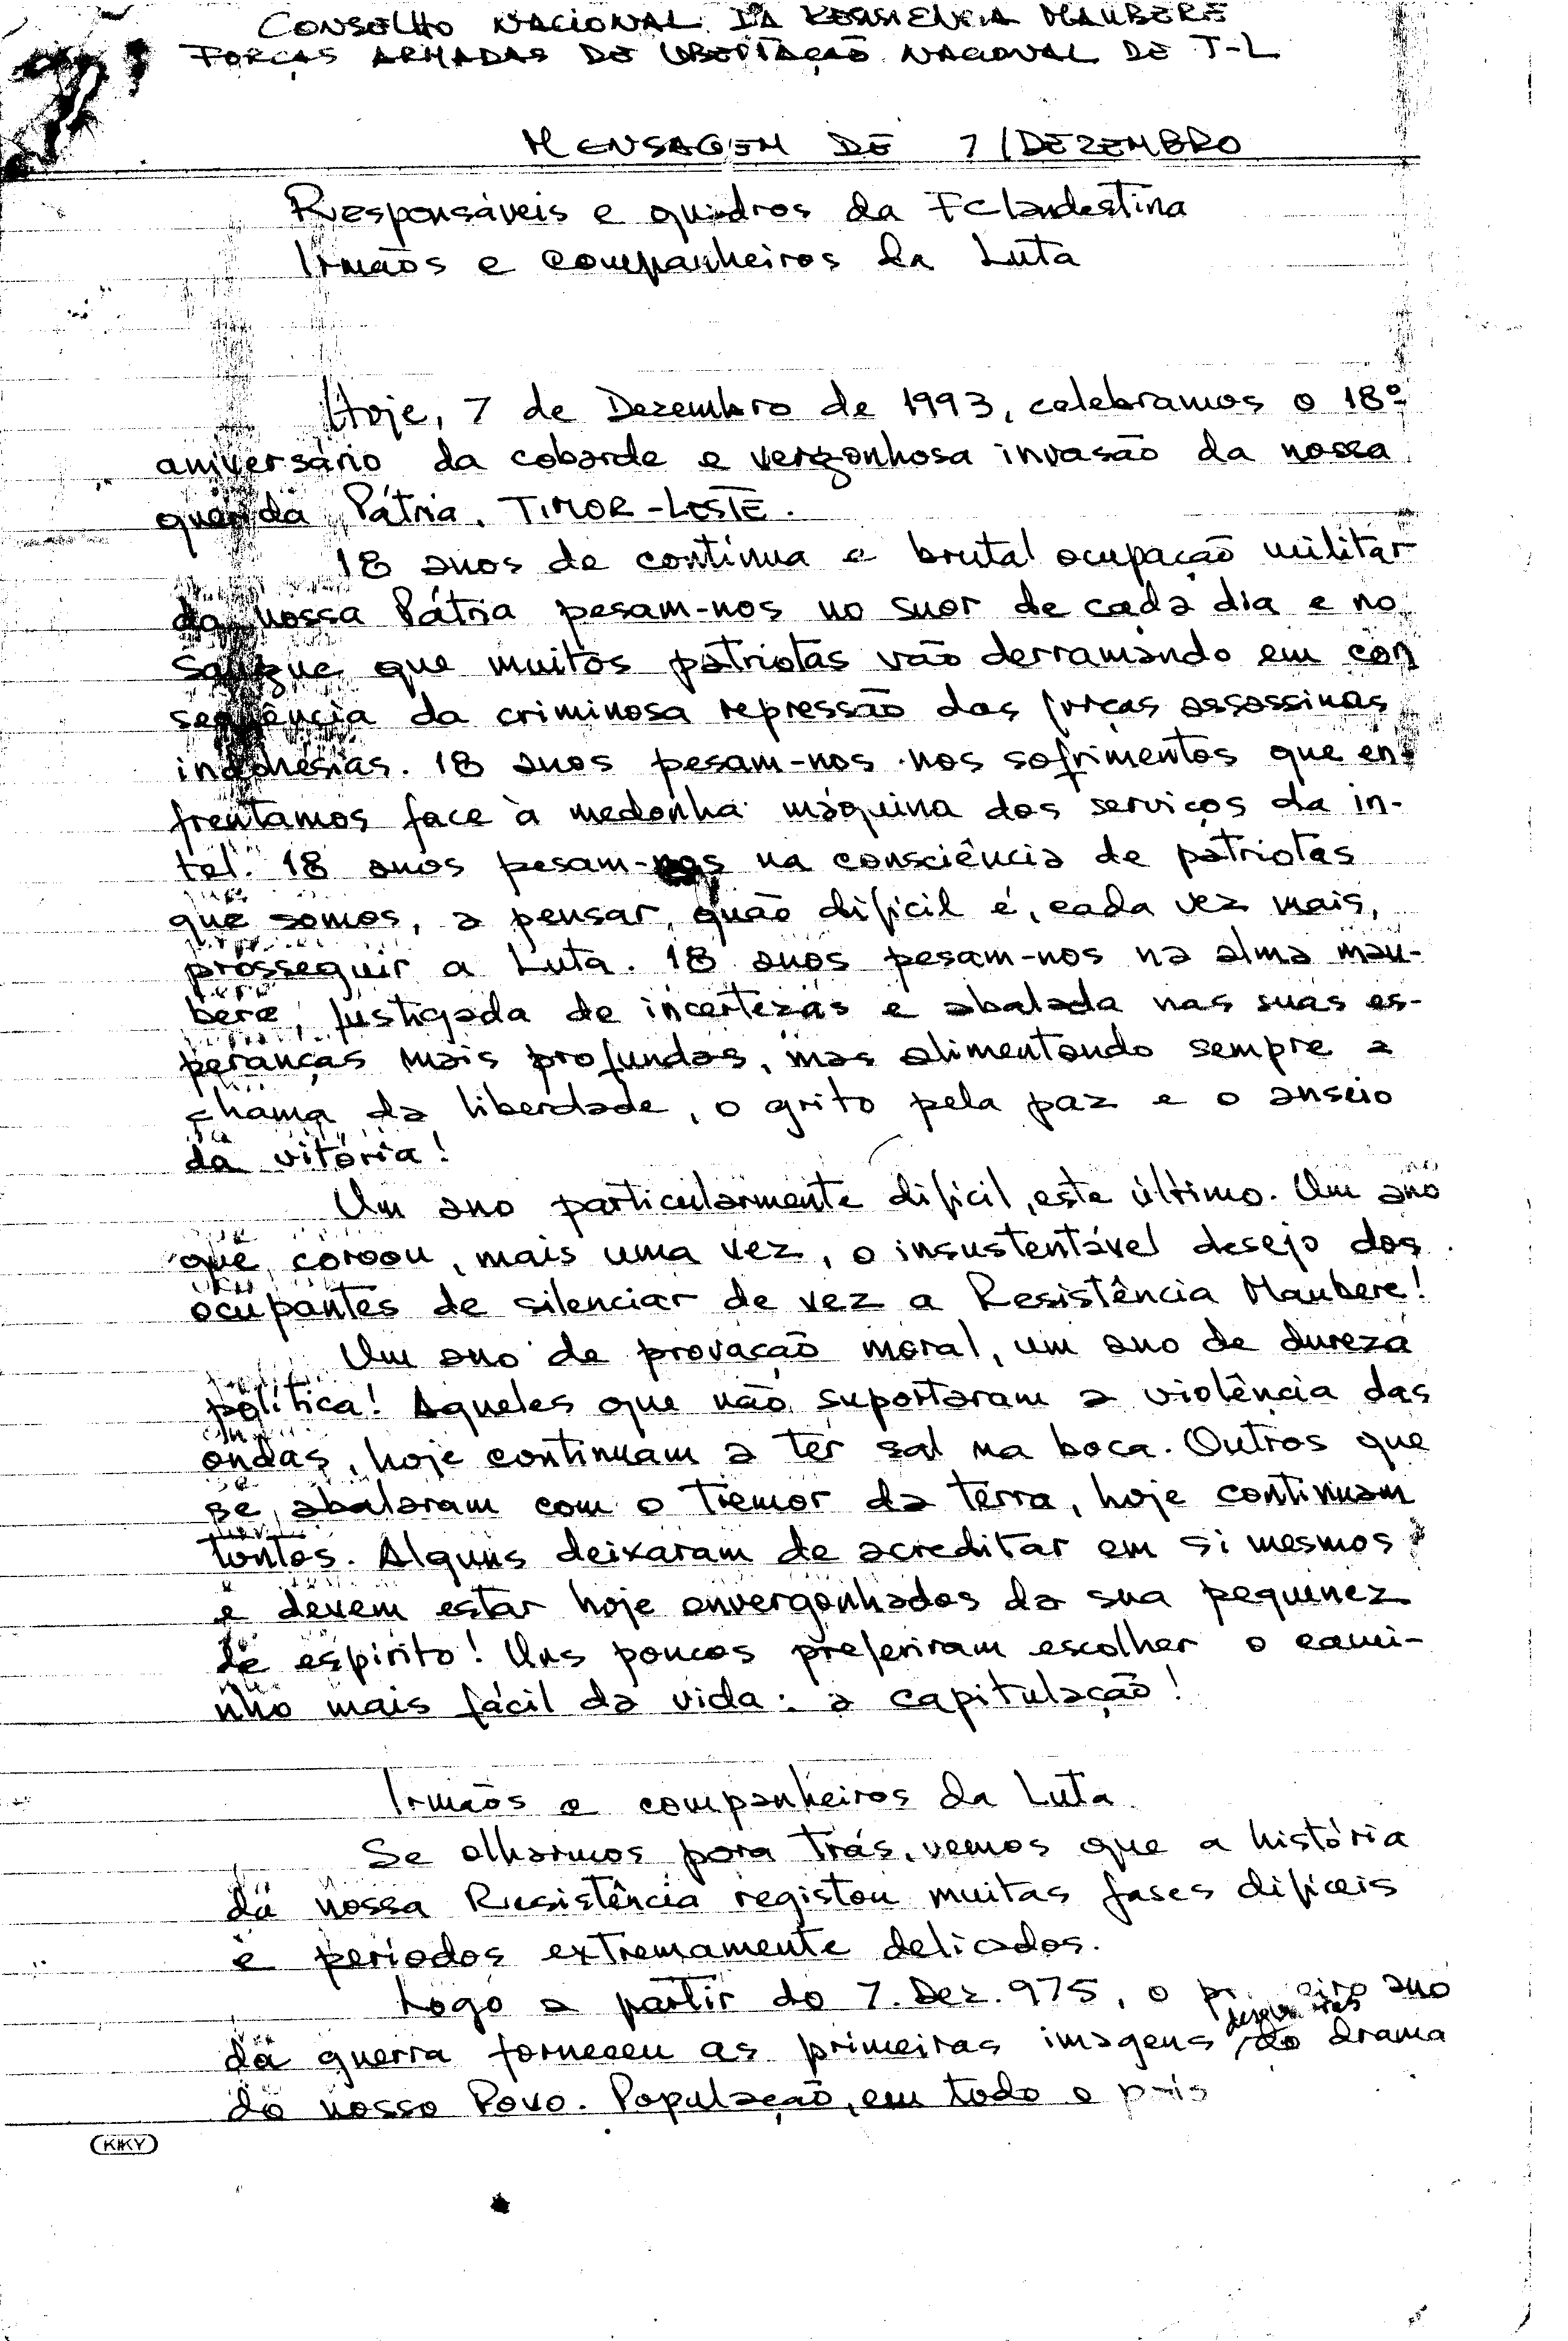 CONSELHO NACIONAL DA RESISTENCIA MAUBERE
FORÇAS ARMADAS DE LIBERTAÇÃO NACIONAL DE T-L
MENSAGEM DE 7/DEZEMBRO
Responsáveis e quadros da FClandestina
Irmãos e companheiros da Luta
Hoje, 7 de Dezembro de 1993, celebramos o 18º
aniversário da cobarde e vergonhosa invasão da nossa
querida Pátria, TIMOR-LESTE.
18 anos de contínua e brutal ocupação militar
da nossa Pátria pesam-nos no suor de cada dia e no
sangue que muitos patriotas vão derramando em con
sequência da criminosa repressão das forças assassinas
indonésias. 18 anos pesam-nos nos sofrimentos que en-
frentamos face à medonha máquina dos serviços da in-
tel. 18 anos pesam-nos na consciência de patriotas
que somos, a pensar quão difícil é, cada vez mais,
prosseguir a Luta. 18 anos pesam-nos na alma mau-
bere, fustigada de incertezas e abalada nas suas es-
peranças mais profundas, mas alimentando sempre a
chama da liberdade, o grito pela paz e o anseio
da vitória!
Um ano particularmente difícil, este último. Um ano
que coroou, mais uma vez, o insustentável desejo dos
ocupantes de silenciar de vez a Resistência Maubere!
Um ano de provação moral, um ano de dureza
política! Aqueles que não suportaram a violência das
ondas, hoje continuam a ter sal na boca. Outros que
se abalaram com o tremor da terra, hoje continuam
tontos. Alguns deixaram de acreditar em si mesmos
e devem estar hoje envergonhados da sua pequenez
de espírito! Uns poucos preferiram escolher o cami-
nho mais fácil da vida: a capitulação!
Irmãos e companheiros da Luta
Se olharmos para trás, vemos que a história
da nossa Resistência registou muitas fases difíceis
e períodos extremamente delicados.
Logo a partir do 7.Dez.975, o ano
da guerra forneceu as primeiras imagens do drama
do nosso Povo. População, em todo o país
KIKY